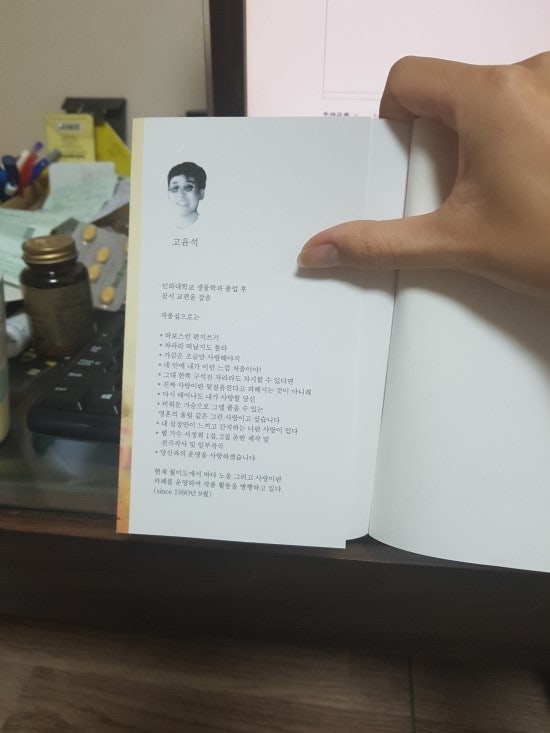 고윤석
인하대학교 생물학과 졸업 후
잠시 교편을 잡음
작품집으로는
• 바보스런 편지쓰기
• 차라리 떠날지도 몰라
• 가끔은 조금만 사랑해야지
• 네 안에 내가 이런 느낌 처음이야!
• 그대 한쪽 구석진 자리라도 차지할 수 있다면
• 진짜 사랑이란 뒷걸음친다고 피해지는 것이 아니래
• 다시 태어나도 내가 사랑할 당신
• 미워문 가슴으로 그댈 품을 수 있는
영혼의 울림 같은 그런 사랑이고 싶습니다
• 내 심장만이 느끼고 간직하는 너란 사랑이 있다
• 월 가수 서정희 1집, 2집 음반 제작 및
전곡작사 및 일부작곡
• 당신과의 운명을 사랑하겠습니다
현재 월미도에서 바다 노을 그리고 사랑이란
카페를 운영하며 작품 활동을 병행하고 있다.
(since 1990년 9월)